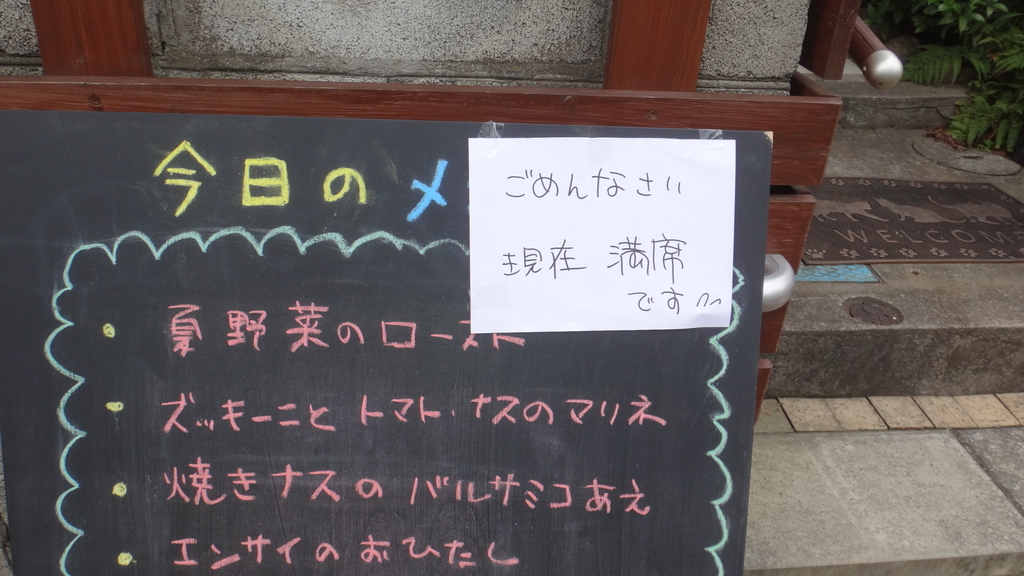 今日のメ
ごめんなさい
現在 満席
です
夏野菜のロースト
ズッキーニとトマト・ナスのマリネ
焼きナスのバルサミコあえ
エンサイのおひたし
WELCOME